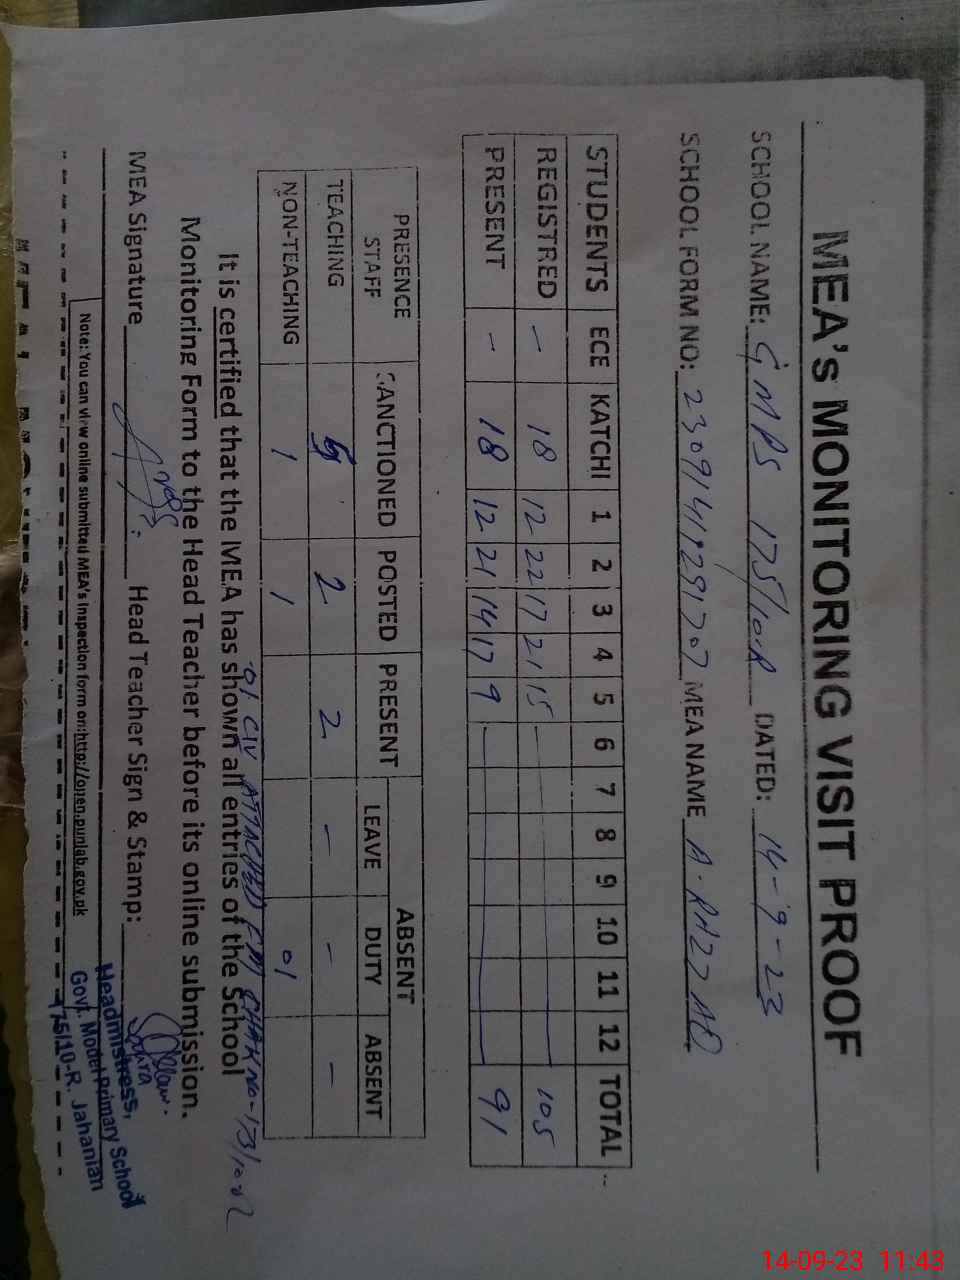 MEA's MONITORING VISIT PROOF
SCHOOL NAME: GMPS 175/10-R DATED: 14-9-23
SCHOOL FORM NO: MEA NAME
STUDENTS ECE KATCHI 1 2 3 4 5 6 7 8 9 10 11 12 TOTAL
REGISTRED - 18 12 22 17 21 15 105
PRESENT - 18 12 21 14 17 9 91
PRESENCE STAFF SANCTIONED POSTED PRESENT ABSENT
LEAVE DUTY ABSENT
TEACHING 5 2 2 - - -
NON-TEACHING 1 1 01
01 CIV ATTACHED CHAK NO-173/10-R
It is certified that the MEA has shown all entries of the School
Monitoring Form to the Head Teacher before its online submission.
MEA Signature Head Teacher Sign & Stamp:
Headmistress,
Govt. Model Primary School
175/10-R. Jahanian
Note: You can view online submitted MEA's inspection form on:http://open.punjab.gov.pk
14-09-23 11:43